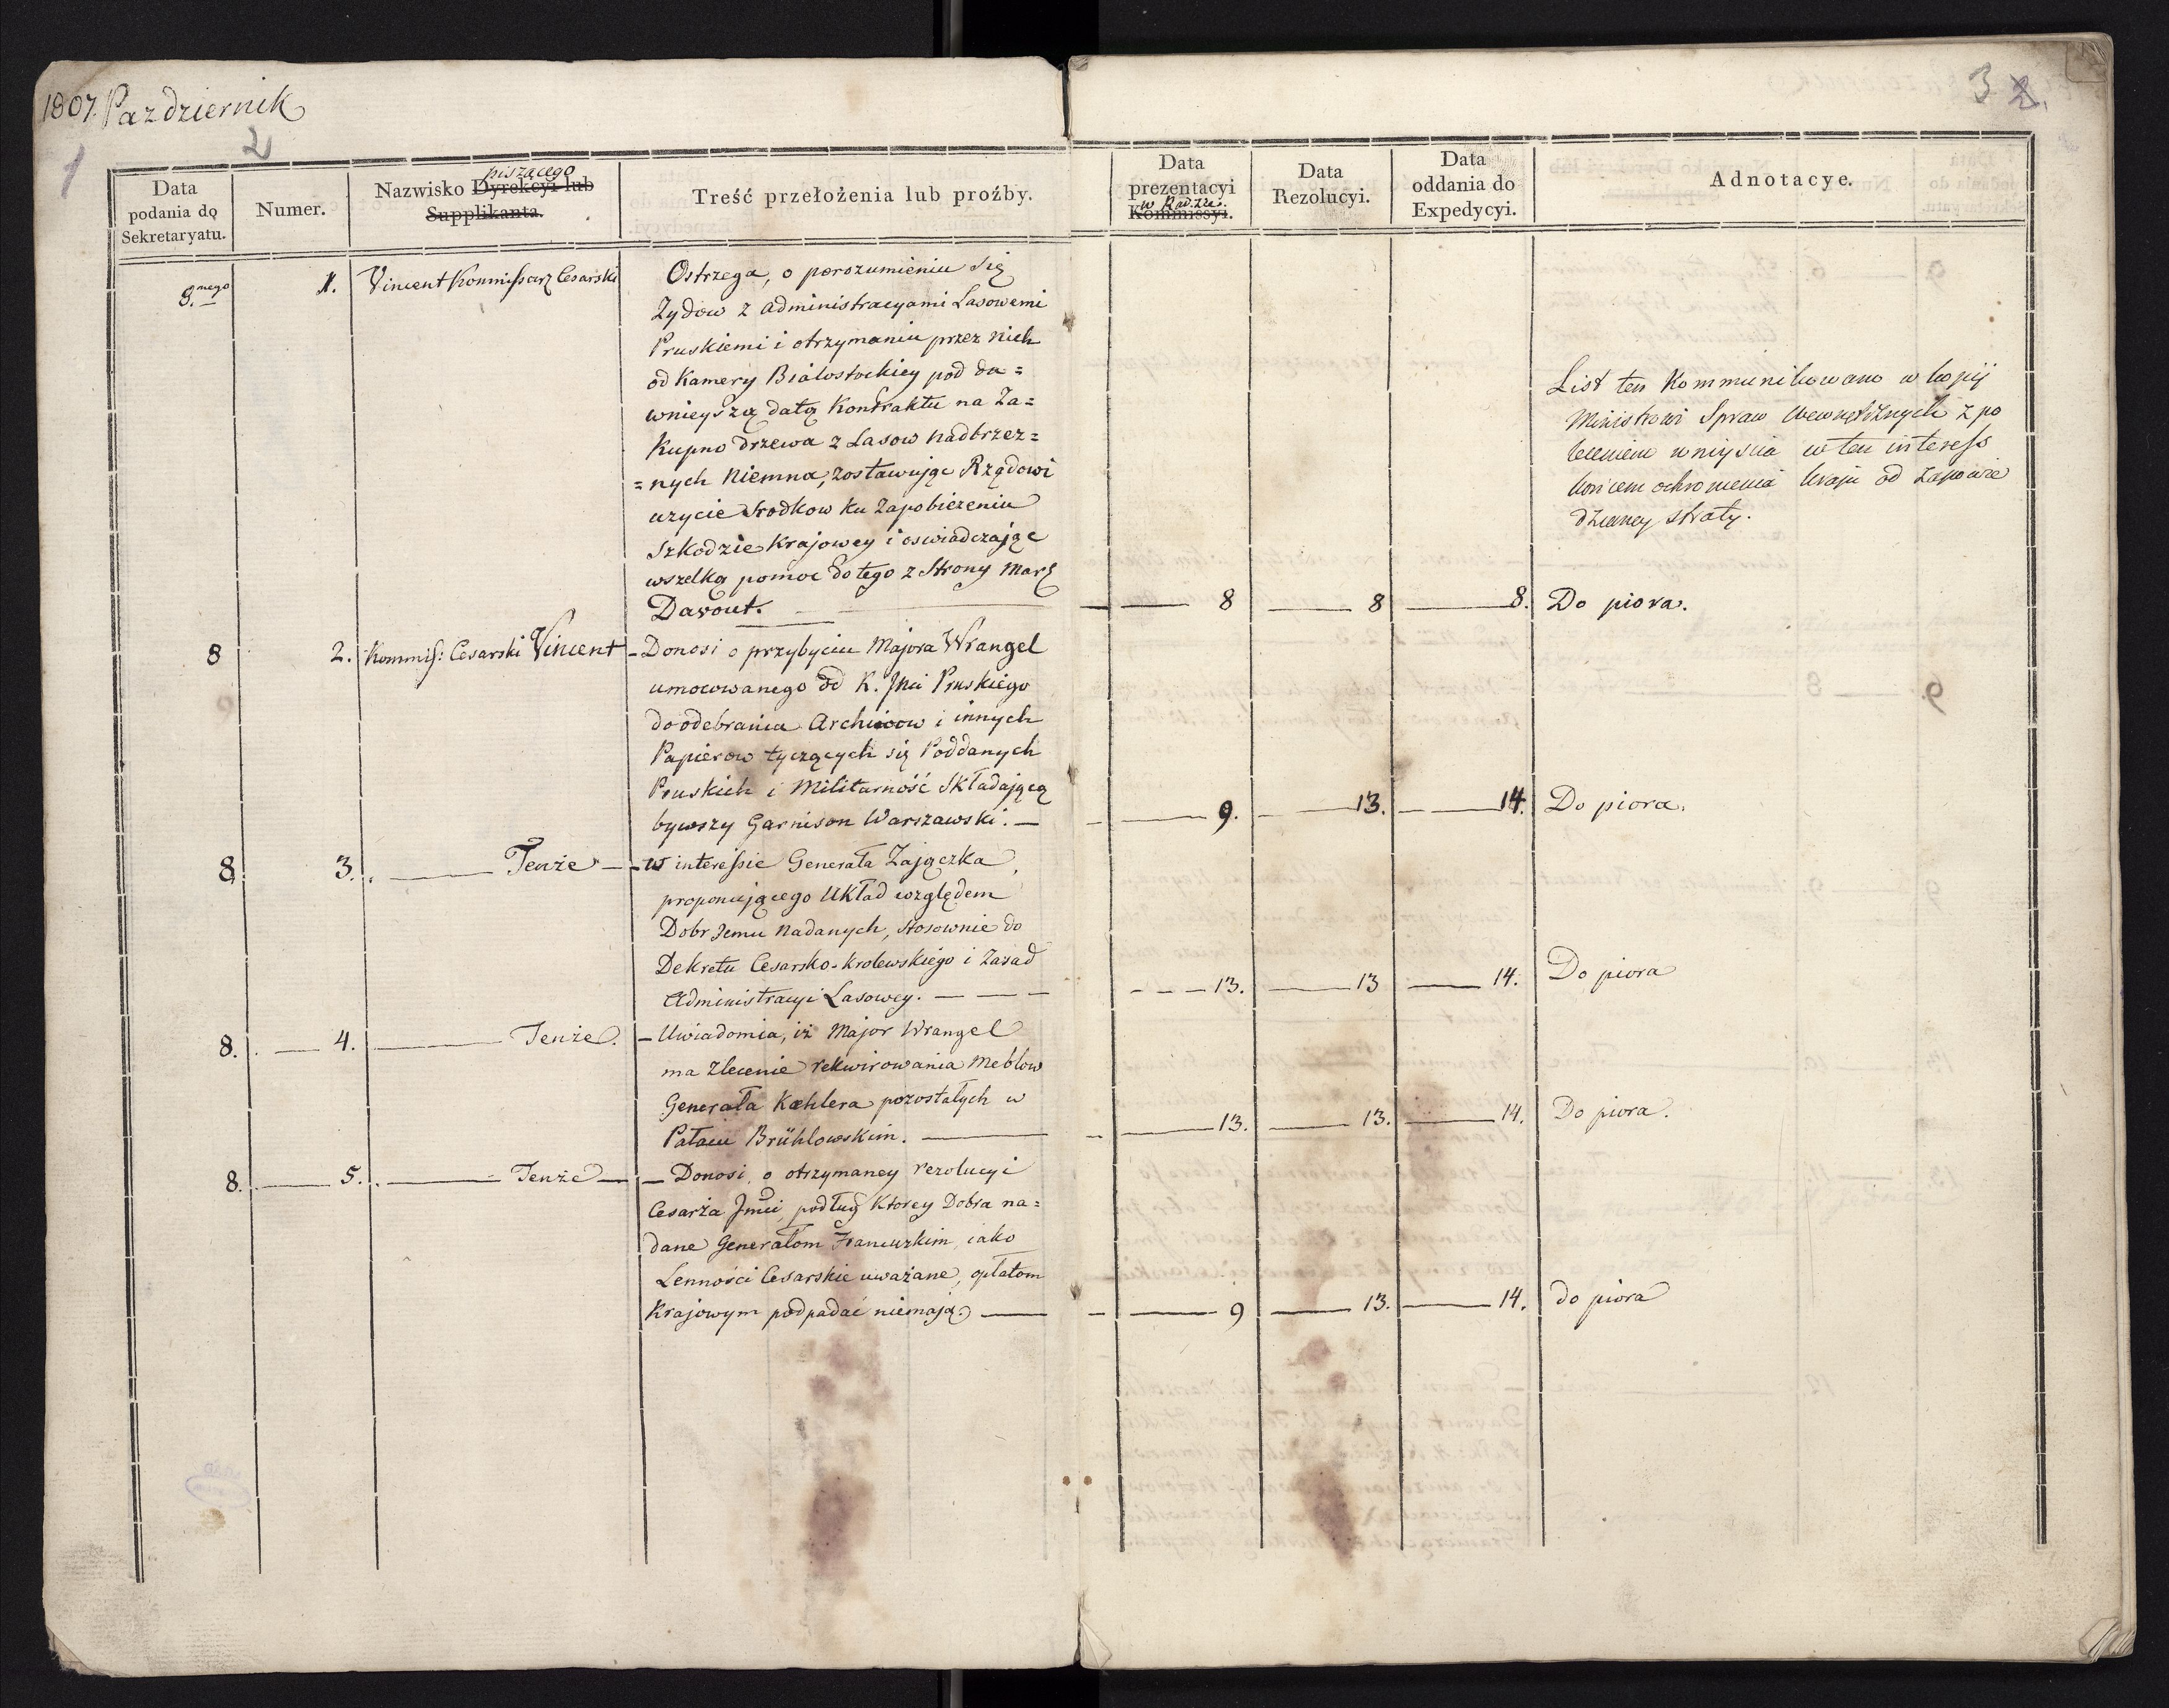 1807. Pazdziernik
1
2
3 2.
Data
podania do
Sekretaryatu.
Numer.
piszącego
Nazwisko Dyrekcyi lub
Supplikanta.
Treść przełożenia lub proźby.
Data
prezentacyi
w Radzie.
Kommissyi.
Data
Rezolucyi.
Data
oddania do
Expedycyi.
Adnotacye.
8.mego 1. Vincent Kommissarz Cesarski
Ostrzega, o porozumieniu się
Zydow z administracyami Lasowemi
Pruskiemi i otrzymaniu przez nich
od Kamery Białostockiey pod da=
wnieyszą datą Kontraktu na Za=
kupno drzewa z Lasow nadbrzez=
=nych Niemna, zostawując Rządowi
uzycie srodkow ku zapobieżeniu
Szkodzie Krajowey i oswiadczając
wszelką pomoc do tego z Strony Marsz
Davout. — 8 — 8 — 8.
List ten Kommunikowano w kopij
Ministrowi Spraw Wewnętrznych z po
leceniem wniyscia w ten interess
końcem ochronienia kraju od zapowie
dzianey straty.
Do piora.
8 2. Kommiss: Cesarski Vincent
– Donosi o przybyciu Majora Wrangel
umocowanego od K. Jmci Pruskiego
do odebrania Archiwow i innych
Papierow tyczących się Poddanych
Pruskich i Militarność Składającą
bywszy Garnison Warszawski. —
— 9. — 13. — 14. Do piora.
8. 3. — Tenże —
– w interessie Generała Zajączka,
proponującego Układ względem
Dobr Jemu nadanych, stosownie do
Dekretu Cesarsko-Krolewskiego i Zasad
Administracyi Lasowey. — — —
— 13. — 13 — 14. Do piora
8. — 4. — Tenże.
– Uwiadomia, iż Major Wrangel
ma zlecenie rekwirowania Meblow
Generała Kœhlera pozostałych w
Pałacu Brühlowskim. —
— 13. — 13. — 14. Do piora.
8. — 5. — Tenże —
– Donosi, o otrzymaney rezolucyi
Cesarża Jmci, podług Ktorey Dobra na=
dane Generałom Francuzkim, iako
Lenności Cesarskie uważane, opłatom
Krajowym podpadać niemają. —
— 9 — 13. — 14. do piora